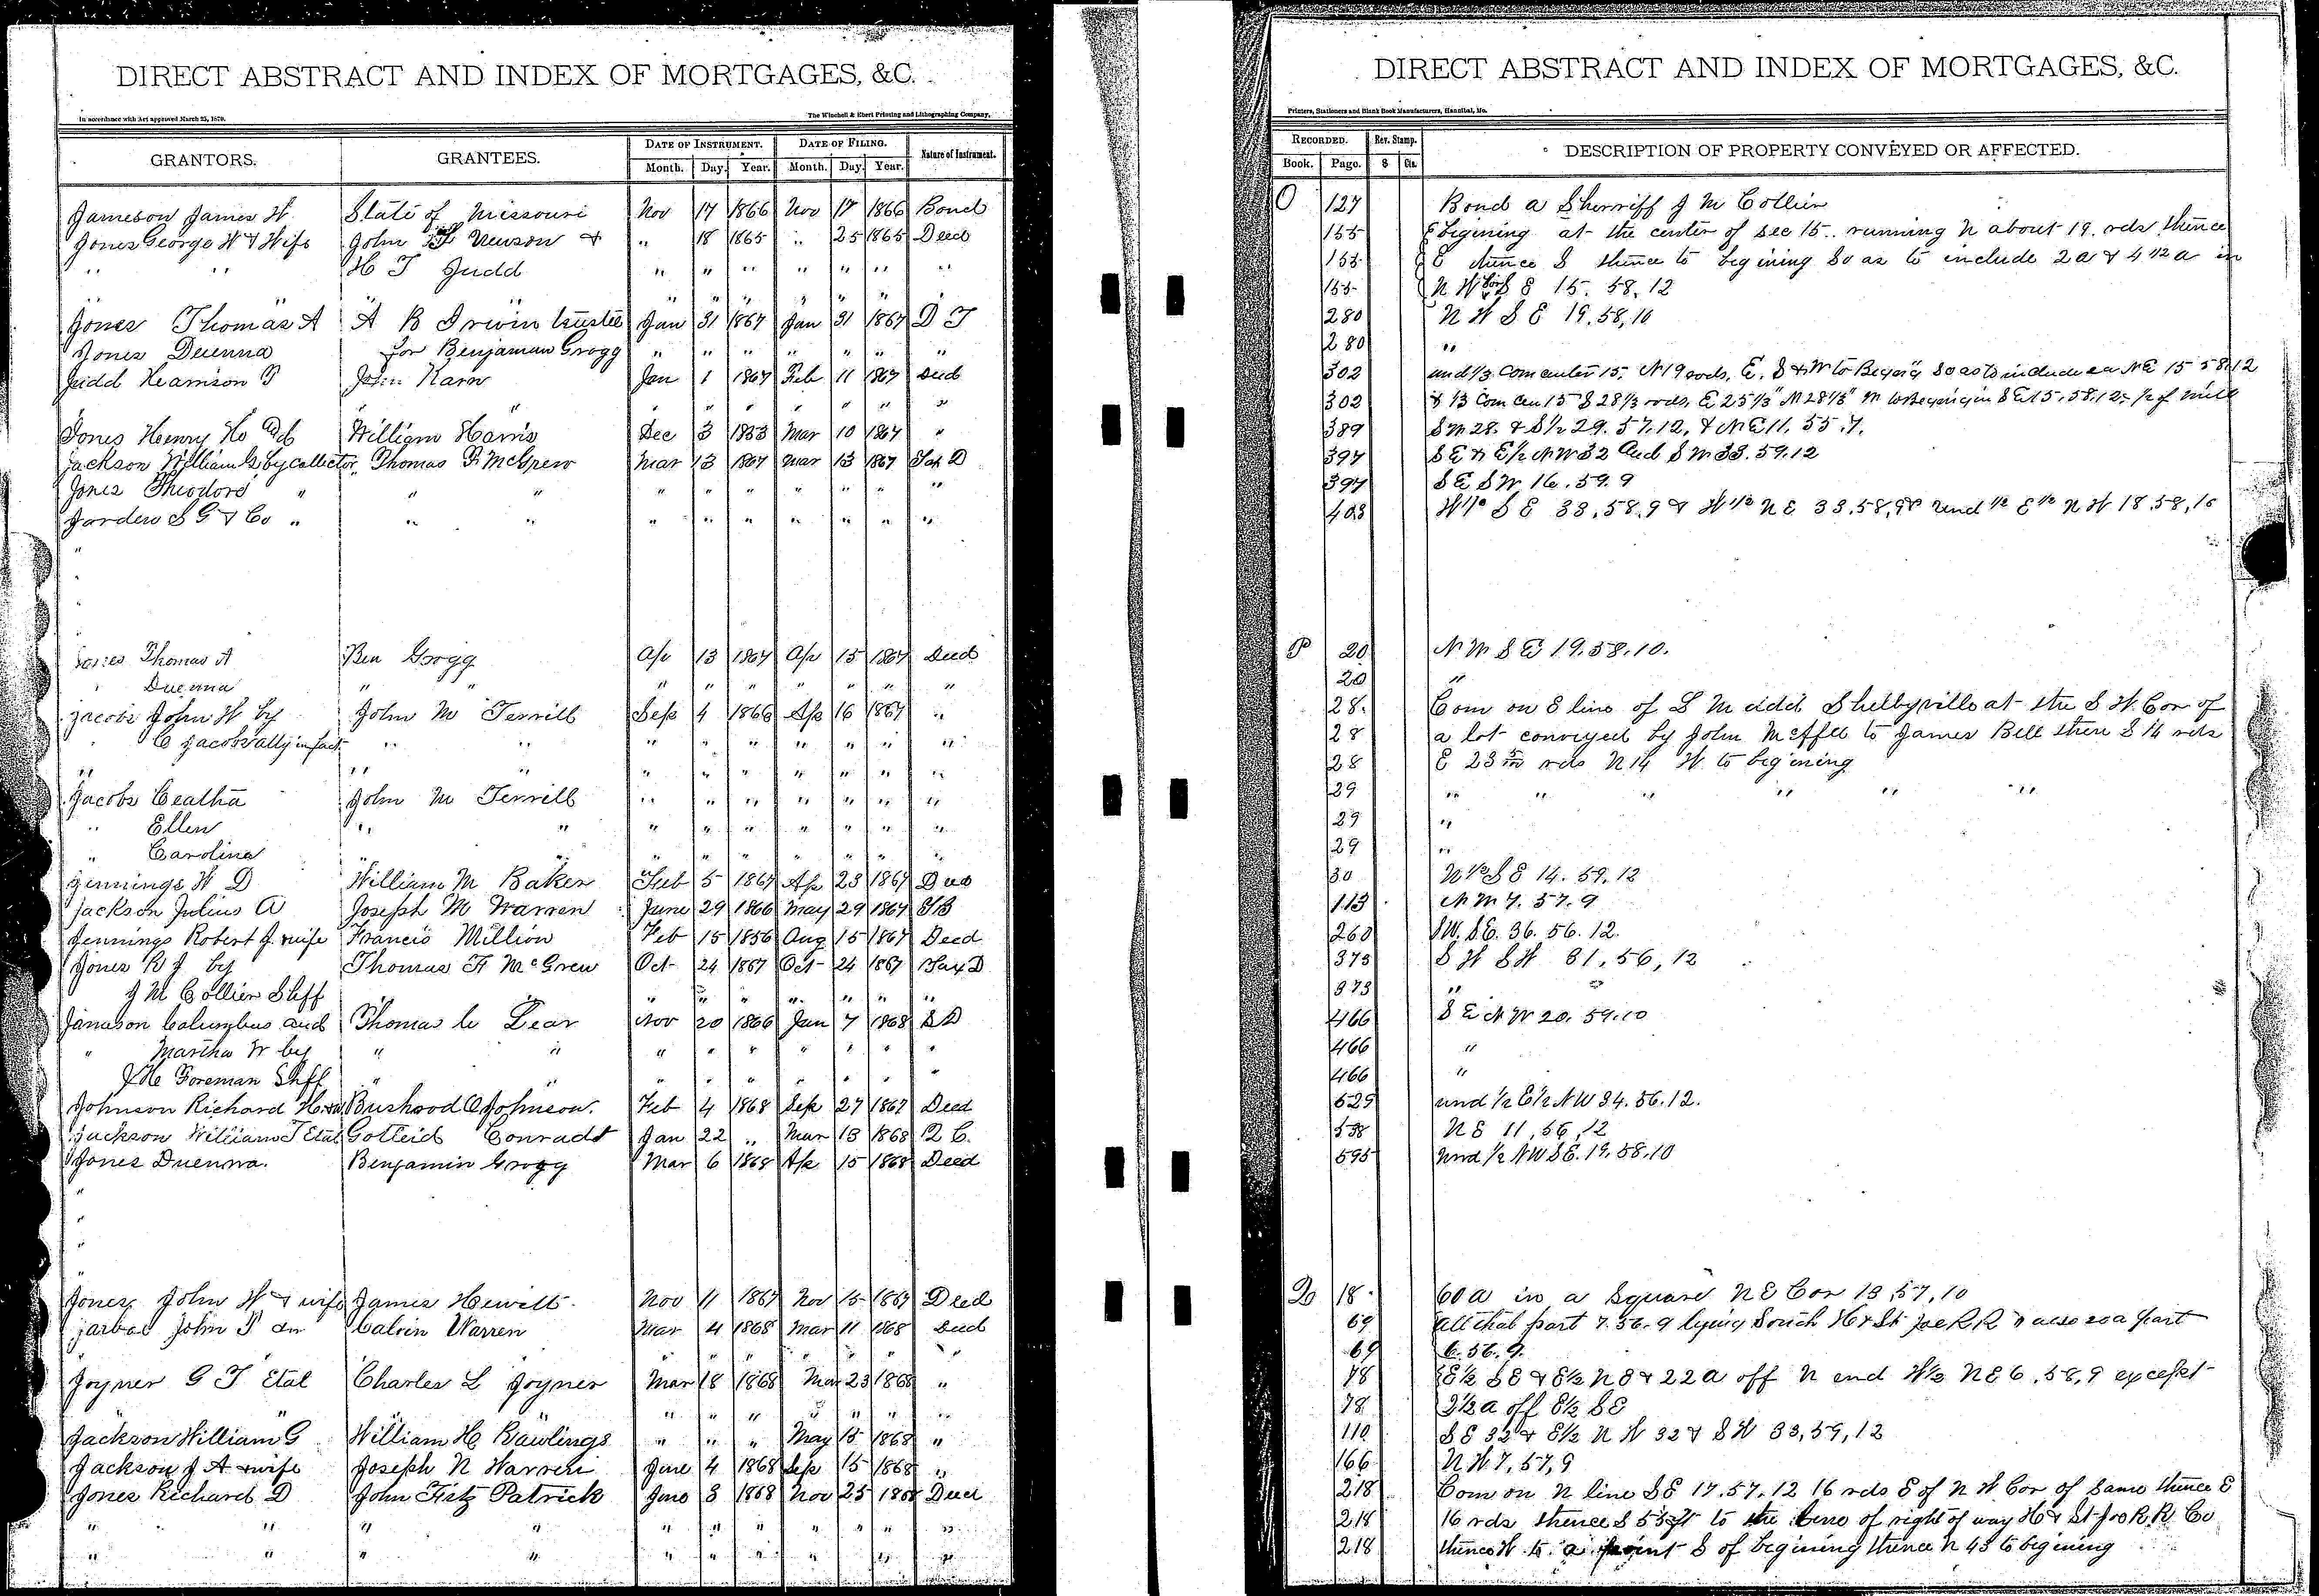 DIRECT ABSTRACT AND INDEX OF MORTGAGES, &C.
In accordance with Act approved March 25, 1870.
The Winchell & Ebert Printing and Lithographing Company,
GRANTORS. GRANTEES. DATE OF INSTRUMENT. DATE OF FILING. Nature of Instrument.
Month. Day. Year. Month. Day. Year.
Jameson James W State of Missouri Nov 17 1866 Nov 17 1866 Bond
Jones George W & Wife John Newson & " 18 1865 " 25 1865 Deed
" " H T Judd " " " " " " "
" " " " " "
Jones Thomas A A B Irwin trustee Jan 31 1867 Jan 31 1867 D T
Jones Duenna for Benjaman Grogg " " " " " " "
Judd Hearrison T John Karn Jan 1 1867 Feb 11 1867 Deed
" " " " " " " "
Jones Henry Ho William Harris Dec 3 1853 Mar 10 1867 "
Jackson William G by Collector Thomas F McGrew Mar 13 1867 Mar 13 1867 Tax D
Jones Theodore " " " " " " " " " "
Jorden S G & Co " " " " " " " " " "
"
Jones Thomas A Ben Grogg Ap 13 1867 Ap 15 1867 Deed
" Duenna " " " " " " " " "
Jacobs John W by John M Terrill Sep 4 1866 Ap 16 1867 "
" C Jacobs atty in fact " " " " " " " " "
" " " " " " " " " "
Jacobs Ceatha John M Terrill " " " " " " "
" Ellen " " " " " " " " "
" Carolina " " " " " " " " "
Jennings W D William M Baker Feb 5 1867 Ap 23 1867 Deed
Jackson Julius A Joseph M Warren June 29 1866 May 29 1867
Jennings Robert J. wife Francis Million Feb 15 1856 Aug 15 1867 Deed
Jones R J by Thomas F McGrew Oct 24 1867 Oct 24 1867 Tax D
J M Collier Shff " " " " " " " "
Jamason Columbus and Thomas C Dear Nov 20 1866 Jan 7 1868 S D
" Martha W by " " " " " " " " "
J H Foreman Shff " " " " " " " " "
Johnson Richard H Bushrod Johnson. Feb 4 1868 Sep 27 1867 Deed
Jackson William T Etal Gotleid Conradt Jan 22 " Mar 13 1868 Q C.
Jones Duenna. Benjamin Grogg Mar 6 1868 Ap 15 1868 Deed
"
"
"
Jones John W & wife James Hewitt Nov 11 1867 Nov 15 1867 Deed
Jarboe John T Calvin Warren Mar 4 1868 Mar 11 1868 Deed
" " " " " " "
Joyner G T Etal Charles L Joyner Mar 18 1868 Mar 23 1868 "
" " " " " " " " "
Jackson William G William H Rawlings " " " May 15 1868 "
Jackson J A & wife Joseph N Warren June 4 1868 Sep 15 1868 "
Jones Richard D John Fitz Patrick June 3 1868 Nov 25 1868 Deed
" " " " " " " " " " "
" " " " " " " " " " "
DIRECT ABSTRACT AND INDEX OF MORTGAGES, &C.
Printers, Stationers and Blank Book Manufacturers, Hannibal, Mo.
RECORDED. Rev. Stamp. DESCRIPTION OF PROPERTY CONVEYED OR AFFECTED.
Book. Page. $ Cts.
O 127 Bond a Sherriff J M Collier
155 begining at the center of Sec 15. running N about 19. rds thence
155 E thence S thence to begining so as to include 2 a & 4 1/2 a in
155 N W S E 15. 58. 12
280 N W S E 19. 58, 10
280 "
302 und 1/3 Com center 15, N 19 rods, E. S & W to Begin'g so as to include 2 a NE 15 58 12
302 & 1/3 Com Cen 15 S 28 1/3 rods, E 25 1/3 N 28 1/3 W to Begining in S E 15, 58, 12, 1/2 of mill
389 S W 28. & S 1/2 29. 57. 12, & N E 11. 55. 7.
394 S E & E 1/2 N W 32 and S W 33. 59. 12
394 S E S W 16. 59. 9
403 W 1/2 S E 33, 58, 9 & W 1/2 N E 33. 58, 9 & und 1/2 E 1/2 N W 18. 58, 10
P 20 N W S E 19. 58. 10.
20 "
28. Com on E line of S M add Shelbyville at the S W Cor of
28 a lot conveyed by John McAffee to James Bell then S 14 rds
28 E 23 rds N 14 W. to begining
29 " " " " " "
29 "
29 "
30 N 1/2 S E 14. 59. 12
113 N W 7. 57. 9
260 S W. S E. 36. 56. 12.
373 S W S W 31, 56, 12
373 "
466 S E N W 20. 59. 10
466 "
466 "
529 und 1/2 E 1/2 N W 34. 56. 12.
538 N E 11, 56, 12
595 und 1/2 N W S E. 19. 58. 10
Q 18 60 a in a Square N E Cor 13, 57, 10
69 all that part 7. 56. 9 lying South H & St Joe R R & also 20 a part
69 6. 56. 9.
78 E 1/2 S E & E 1/2 N E & 22 a off N end W 1/2 N E 6, 58, 9 except
78 3 1/2 a off E 1/2 S E
110 S E 32 & E 1/2 N W 32 & S W 33, 59, 12
166 N W 7, 57, 9
218 Com on N line S E 17. 57. 12 16 rds E of N W Cor of same thence E
218 16 rds thence S 53 ft to the line of right of way H & St Joe R. R. Co
218 thence W to a point S of begining thence N 43 to begining